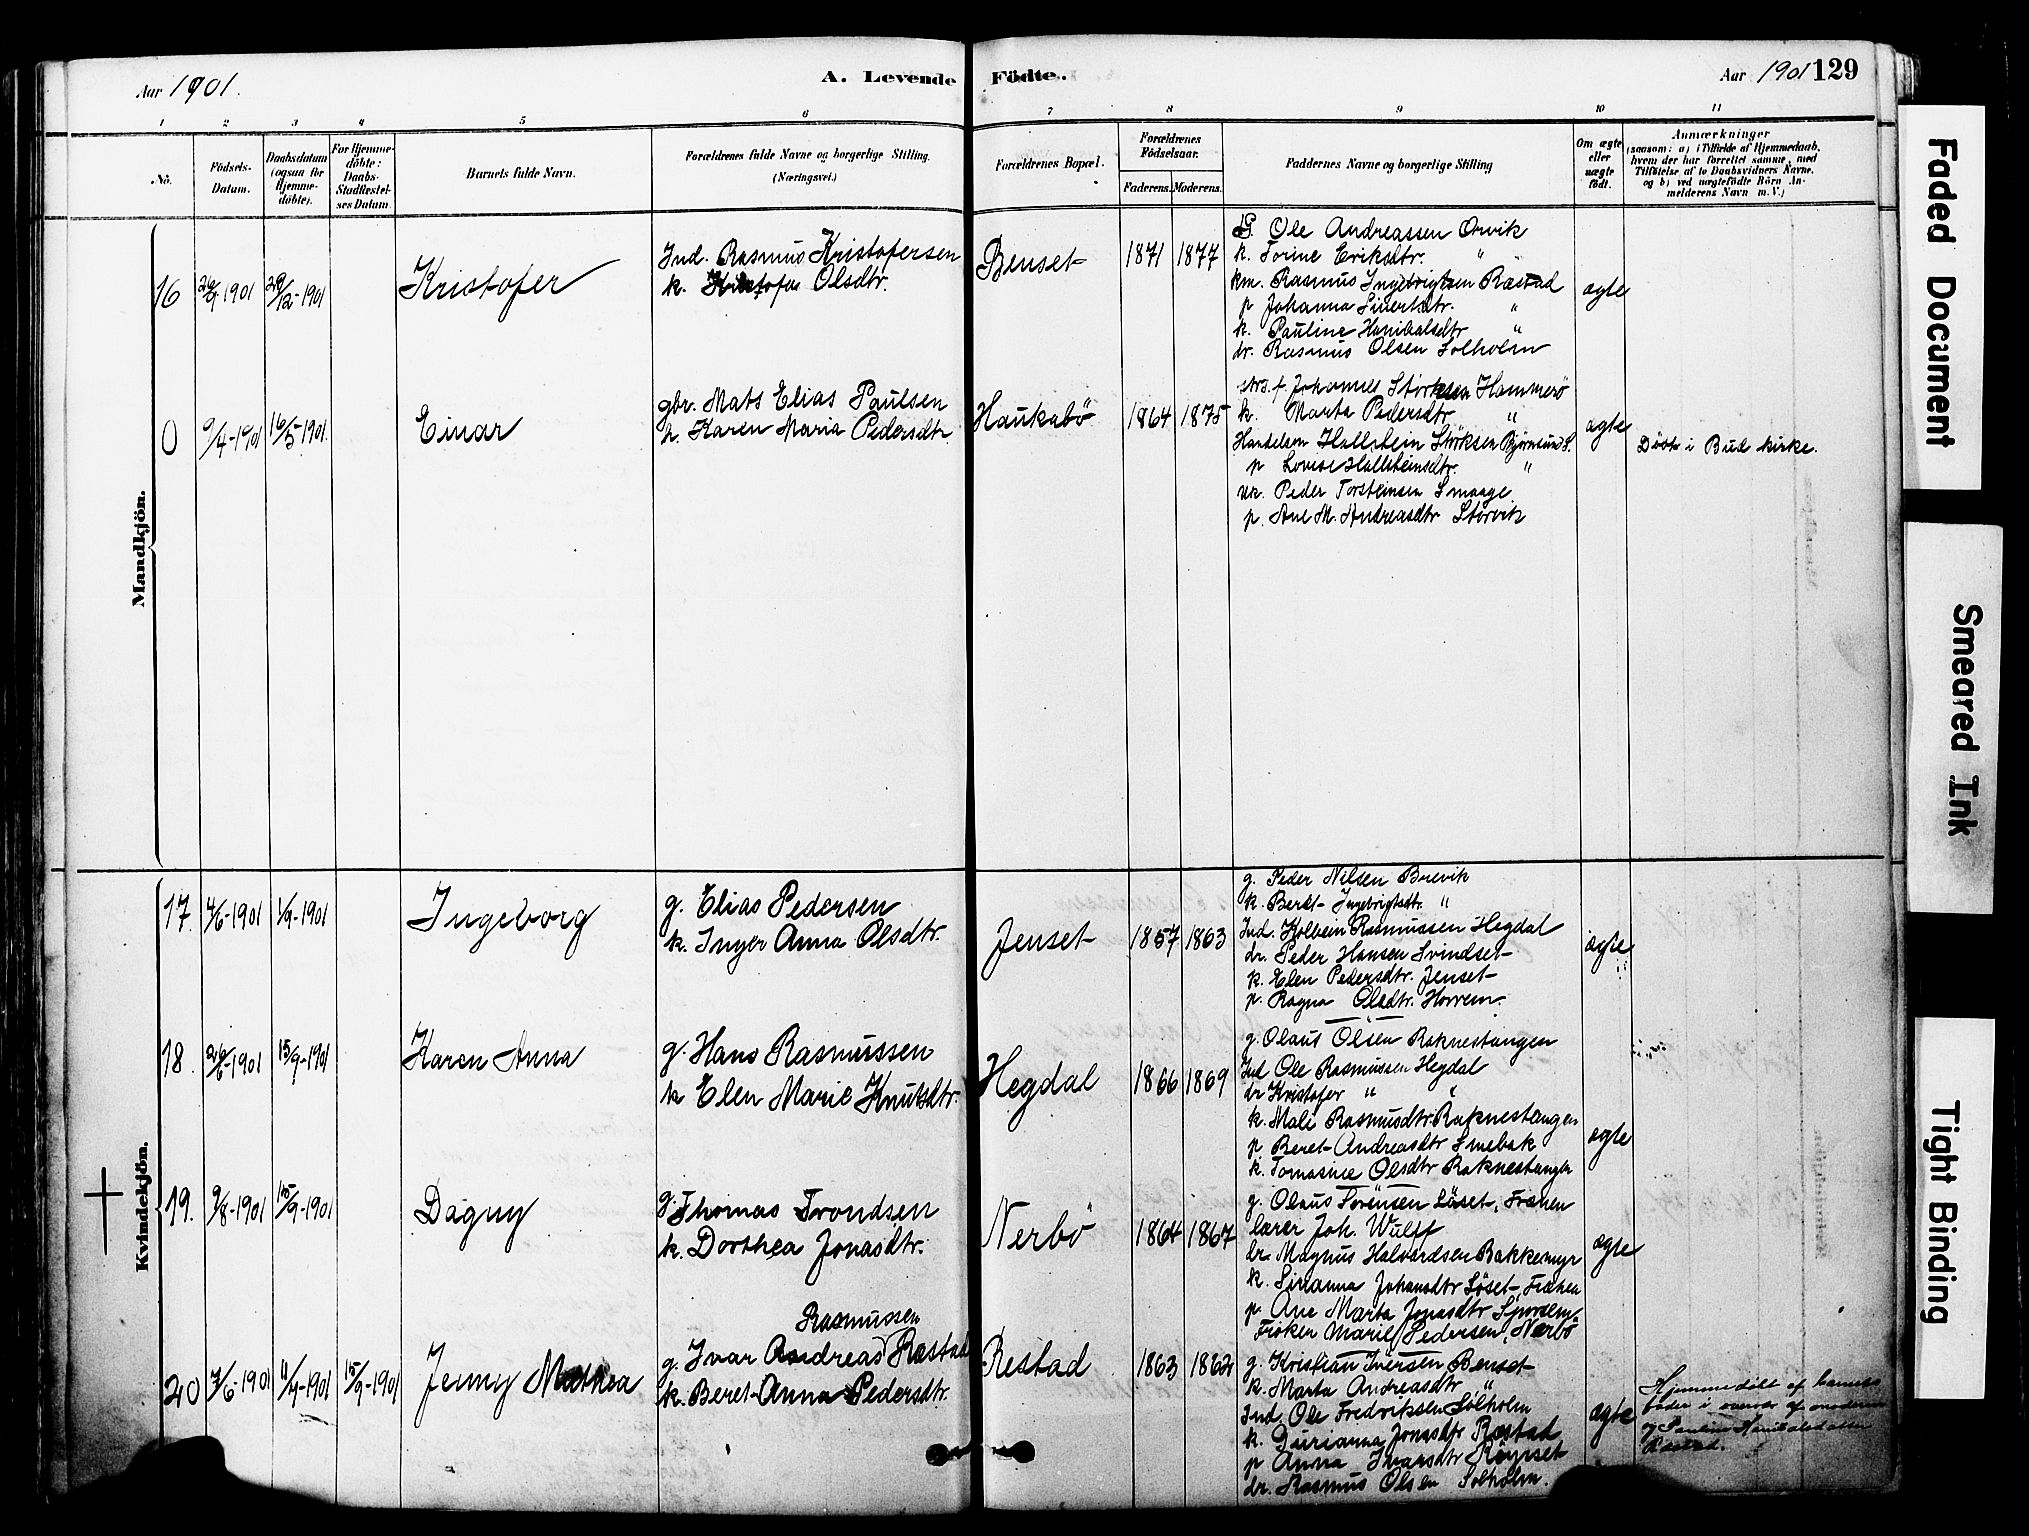 Aar 1901.
A. Levende Födte.
Aar 1901 129
1 2 3 4 5 6 7 8 9 10 11
No.
Födsels-
Datum.
Daabsdatum
(ogsaa for
Hjemme-
döbte).
For Hjemme-
döbte:
Daabs-
Stadfæstel-
ses Datum.
Barnets fulde Navn.
Forældrenes fulde Navne og borgerlige Stilling.
(Næringsvei.)
Forældrenes Bopæl.
Forældrenes
Födselsaar.
Faderens. Moderens.
Faddernes Navne og borgerlige Stilling
Om ægte
eller
uægte
födt.
Anmærkninger
(saasom: a) i Tilfælde af Hjemmedaab,
hvem der har forrettet samme, med
Tilföielse af to Daabsvidners Navne,
og b) ved uægtefödte Börn An-
melderens Navn m. V.)
Mandkjön.
16 1901 29/12-1901
Kristofer
Ind. Rasmus Kristofersen
k. Olsdtr.
Benset
1871 1877
G. Ole Andreassen Orvik
k. Torine Eriksdtr. "
km. Rasmus Ingebrigtsen Ræstad
p Johanna Sivertsdtr. "
k. Pauline Hanibalsdtr "
dr. Rasmus Olsen Solholm
ægte
0 9/4-1901 16/5-1901
Einar
gbr. Mats Elias Paulsen
h. Karen Maria Pedersdtr.
Haukabö
1864 1875
strs. f. Johannes Störksen Hammerö
h. Marta Pedersdtr "
Handelsm Hallstein Störksen Björnsund S.
p Lovise Hallsteinsdtr. "
uk. Peder Torsteinsen Smaage
p. Ane M. Andreasdtr Storvik
ægte
Döbt i Bud kirke.
Kvindekjön.
17. 4/6-1901 1/9-1901
Ingeborg
g. Elias Pedersen
k. Inger Anna Olsdtr.
Jenset
1857 1863
g. Peder Nilsen Brevik
k. Beret Ingebrigtsdtr. "
Ind. Kolbein Rasmussen Hegdal
dr. Peder Hansen Svindset
k. Elen Pedersdtr. Jenset
p. Ragna Olsdtr. Horrem.
ægte
18. 26/6-1901 15/9-1901
Karen Anna
g. Hans Rasmussen
k Elen Marie Knutsdtr.
Hegdal
1866 1869
g. Olaus Olsen Raknestangen
Ind Ole Rasmussen Hegdal
dr Kristofer " "
k. Mali Rasmusdtr. Raknestangen
p Beret Andreasdtr Smebak
k. Tomasine Olsdtr Raknestangen
ægte
19. 9/8-1901 15/9-1901
Dagny
g. Thomas Trondsen
k. Dorthea Jonasdtr.
Nerbö
1864 1867
g. Olaus Sörensen Löset, Frænen
lærer Joh. Wulff
dr. Magnus Halvardsen Bakkemyr
k. Sirianna Johansdtr Löset Frænen
p Ane Marta Jonasdtr Sporsem
Fröken Marie Pedersen, Nerbö
ægte
20 7/6-1901 11/7-1901 15/9-1901
Jenny Mathea
Rasmussen
g. Ivar Andreas Ræstad
k. Beret Anna Pedersdtr.
Restad
1863 1862
g. Kristian Iversen Benset
k. Marta Andreasdtr "
Ind. Ole Fredriksen Solholm
k. Durianna Jonasdtr Ræstad
p Anna Ivarsdtr Röynset
dr. Rasmus Olsen Solholm.
ægte
Hjemmedöbt af barnets
fader i overvær af moderen
og Pauline Hanibalsdatter
Ræstad.
Faded Document
Smeared Ink
Tight Binding